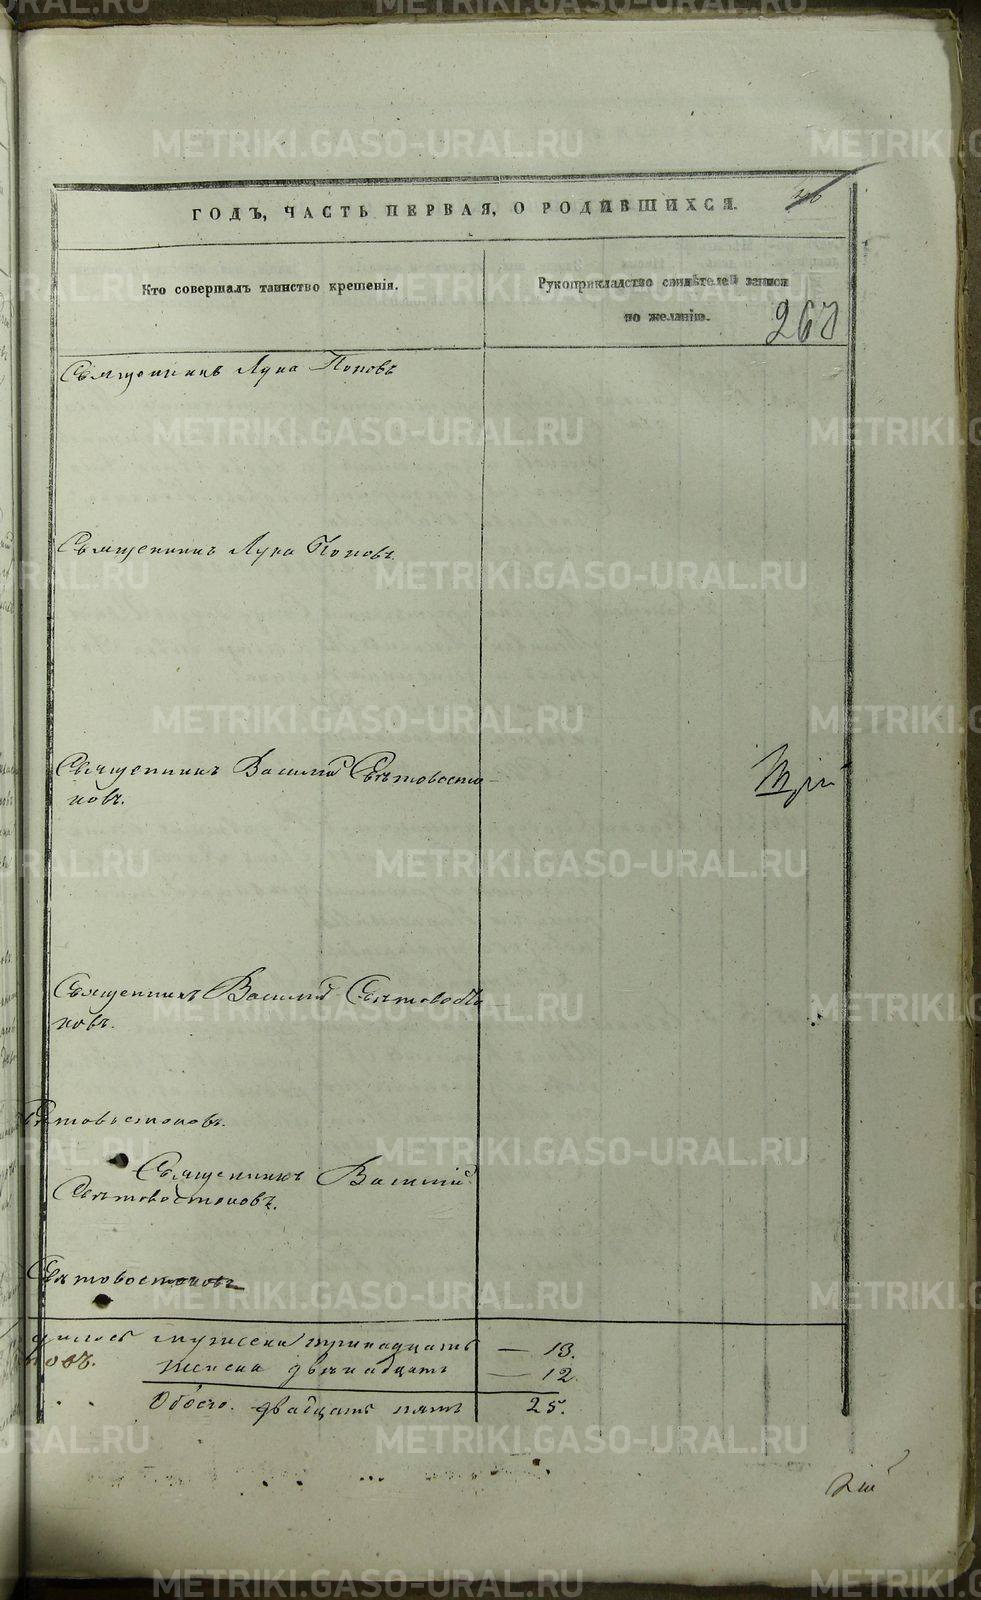 ГОДЪ, ЧАСТЬ ПЕРВАЯ, О РОДИВШИХСЯ.
Кто совершалъ таинство крещенія.
Рукоприкладство свидѣтелей записи
по желанію.
267
Священникъ Лука Поповъ
Священникъ Лука Поповъ.
Священникъ Василій Святовосто-
ковъ.
Священникъ Василій Святовосто-
ковъ.
Святовостоковъ.
Священникъ Василій
Святовостоковъ.
Святовостоковъ
мужска тринадцать — 13.
женска двенадцать — 12.
Обоего. двадцать пять 25.
METRIKI.GASO-URAL.RU